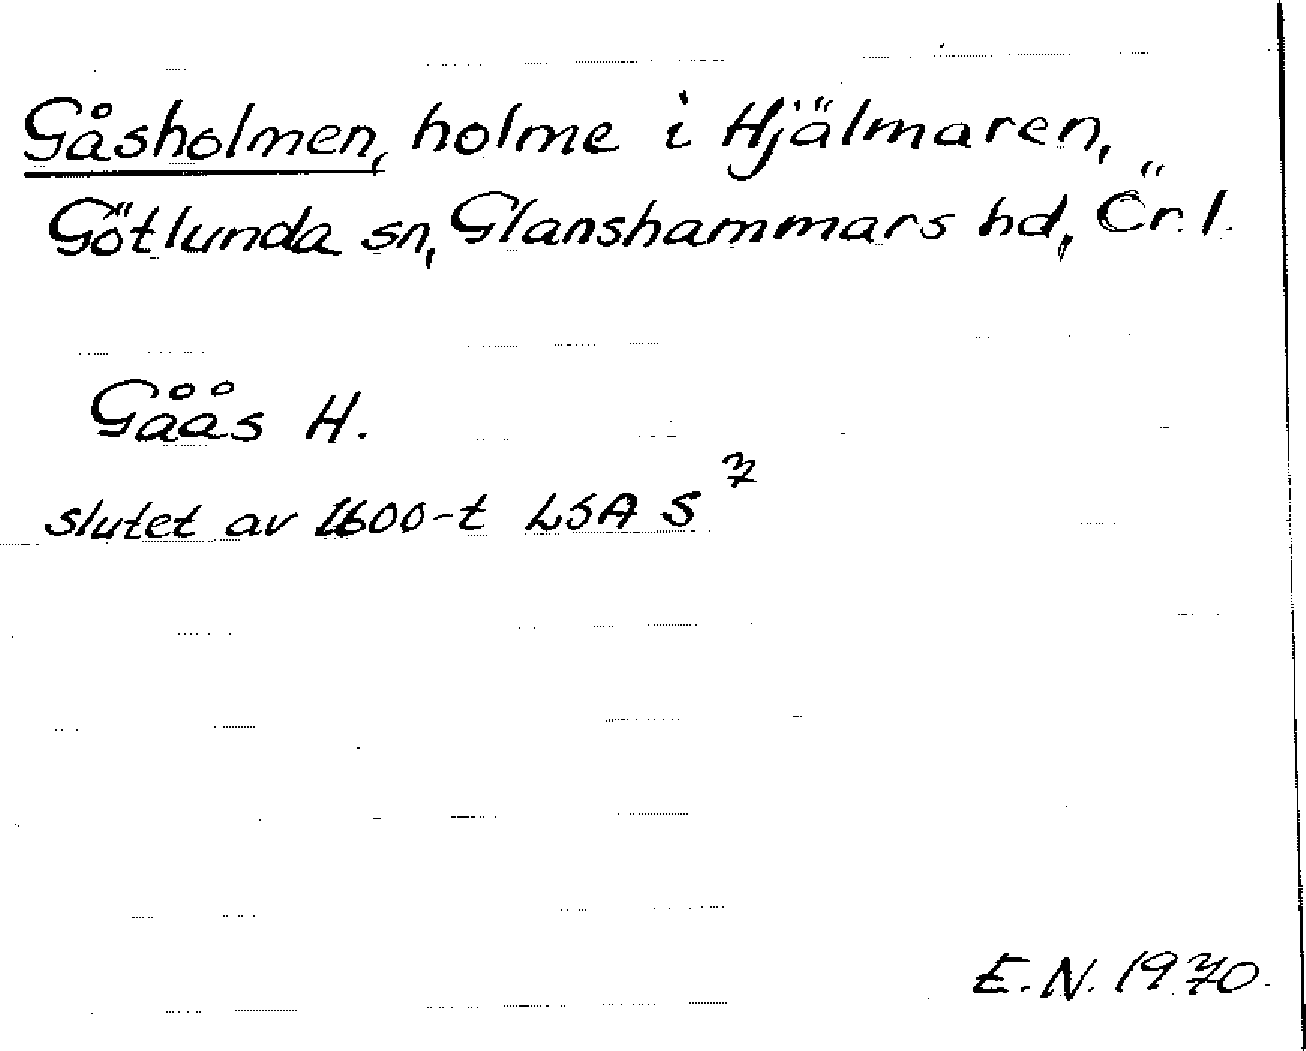 Gåsholmen, holme i Hjälmaren,
Götlunda sn, Glanshammars hd, Ör. l.
Gåås H.
slutet av 1600-t LSA S 7
E.N. 1970.